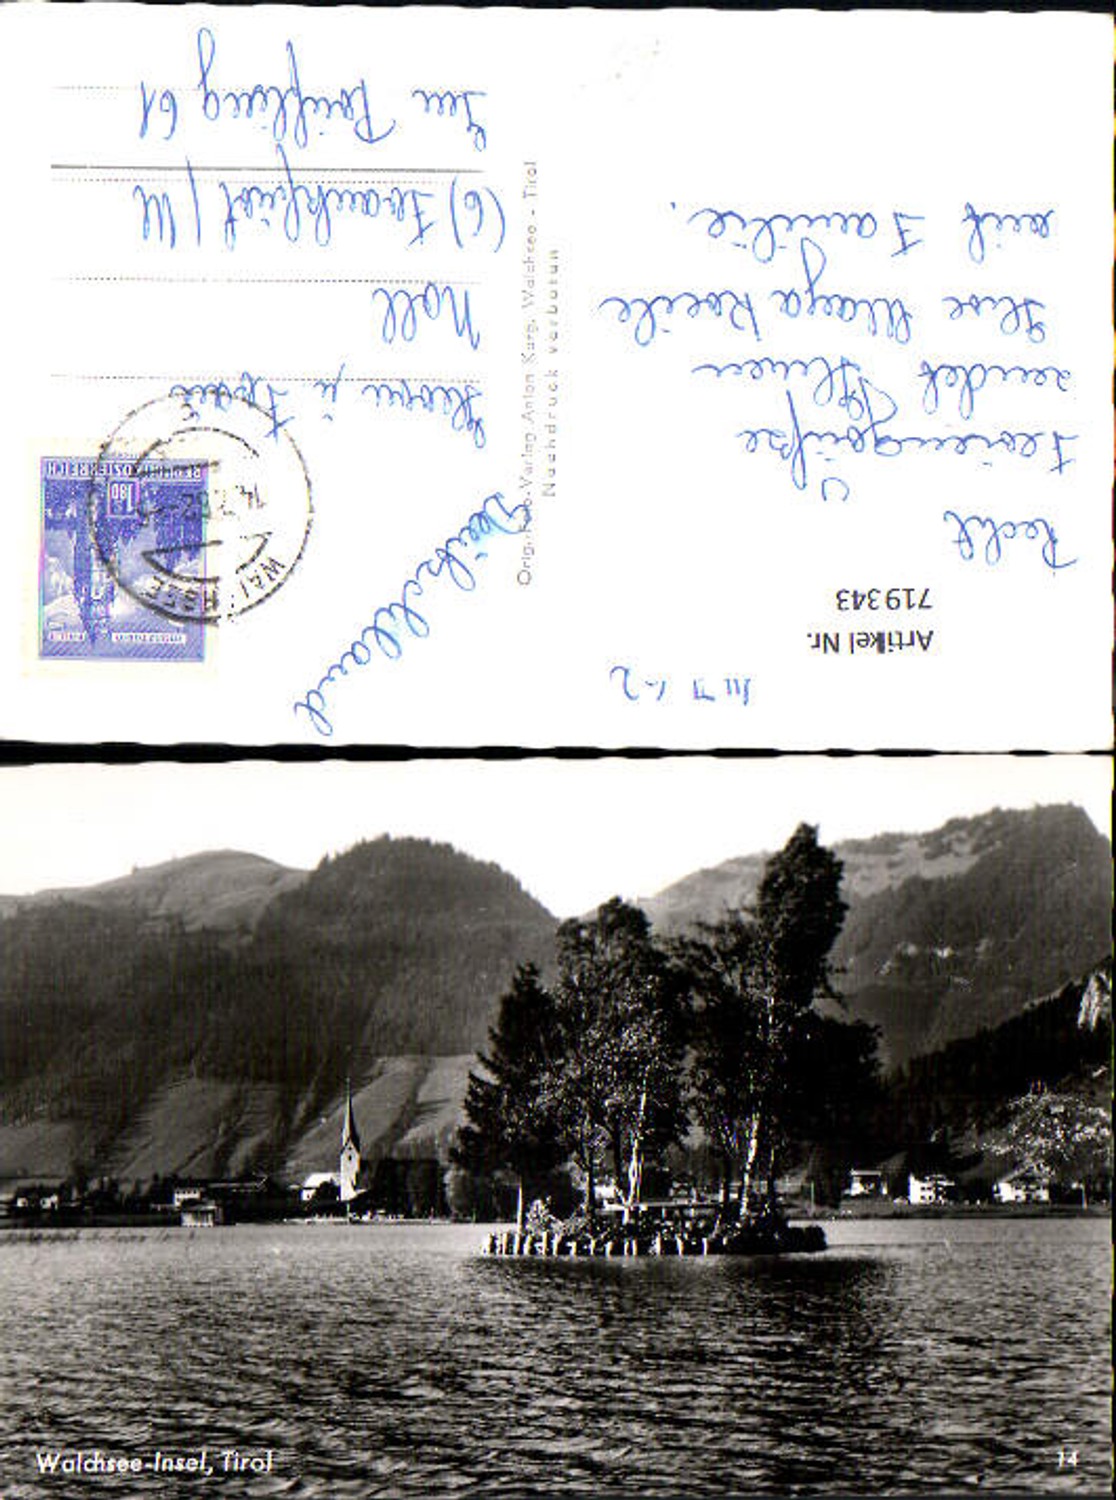 14.7.62
Artikel Nr.
719343
Recht
Feriengrüße
sendet Ihnen
Ihre
mit Familie.
Orig. Foto-Verlag Anton Karg, Walchsee - Tirol
Nachdruck verboten
Deutschland
REPUBLIK ÖSTERREICH
1.80
WALCHSEE
Herrn u. Frau
Noll
(6) Frankfurt / M
61
Walchsee-Insel, Tirol
14